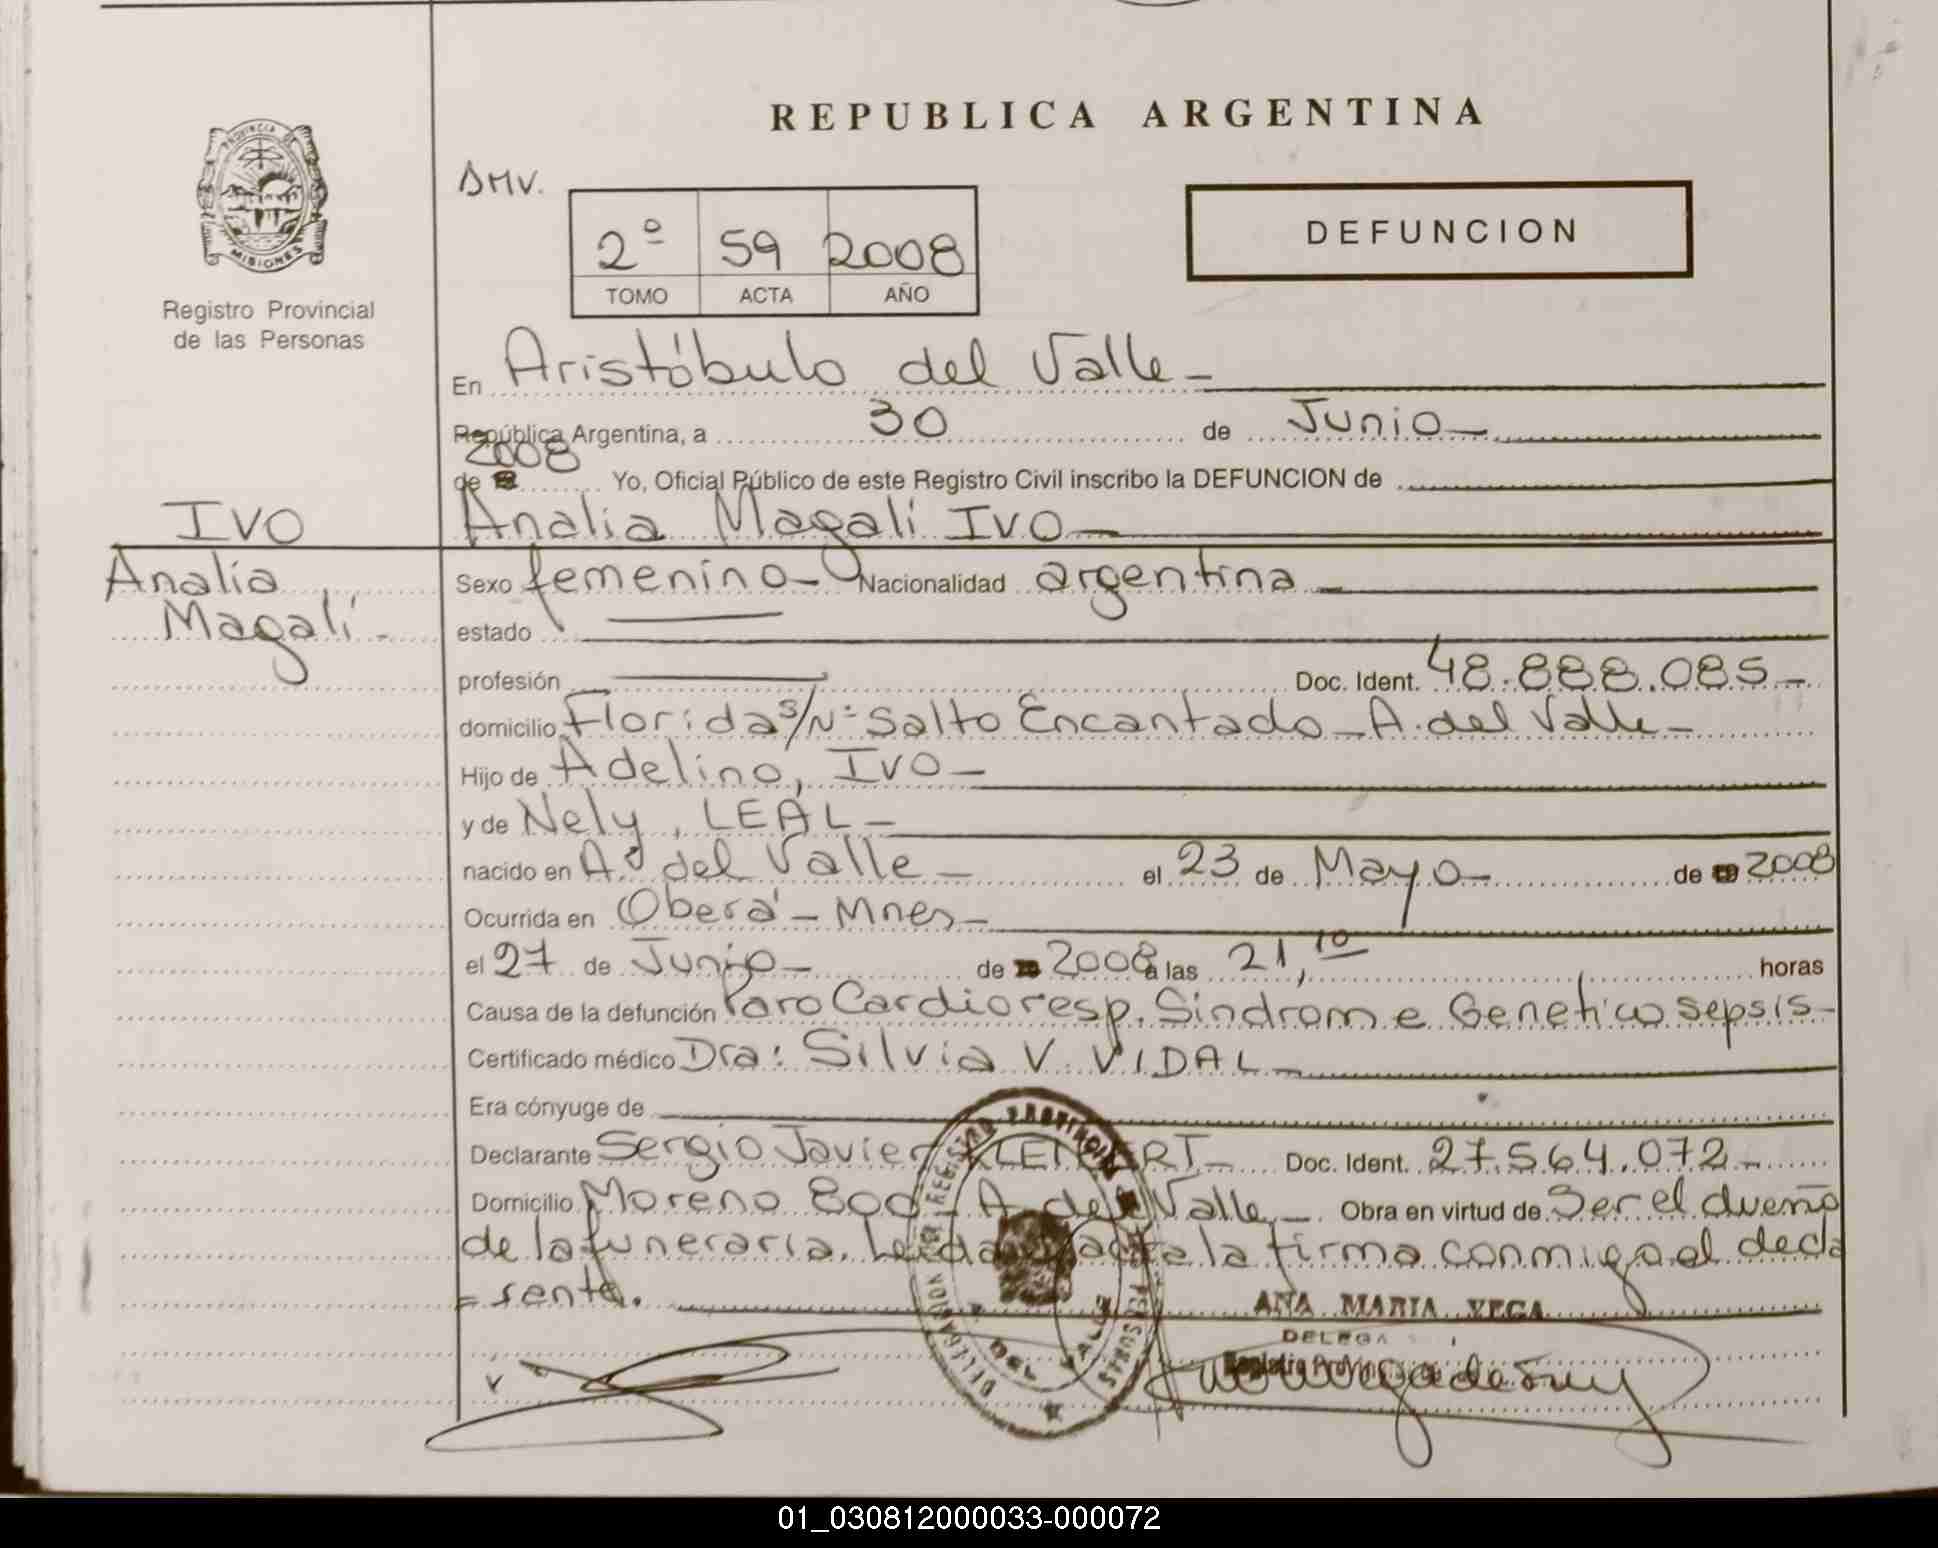 REPUBLICA ARGENTINA
PROVINCIA DE
MISIONES
Registro Provincial
de las Personas
DMV.
2º 59 2008
TOMO ACTA AÑO
DEFUNCION
En Aristóbulo del Valle
República Argentina, a 30 de Junio
2008
de Yo, Oficial Público de este Registro Civil inscribo la DEFUNCION de
IVO
Analia Magalí IVO
Analía
Magalí
Sexo femenino Nacionalidad argentina
estado
profesión Doc. Ident. 48.888.085
domicilio Florida S/Nº Salto Encantado - A. del Valle
Hijo de Adelino, IVO
y de Nely, LEAL
nacido en A. del Valle el 23 de Mayo de 2008
Ocurrida en Oberá - Mnes
el 27 de Junio de 2008 a las 21,10 horas
Causa de la defunción Paro Cardioresp. Sindrome Genetico sepsis
Certificado médico Dra: Silvia V. VIDAL
Era cónyuge de
Declarante Sergio Javier Doc. Ident. 27.564.072
Domicilio Moreno 800 - A. del Valle Obra en virtud de Ser el dueño
de la funeraria. Leida acta la firma conmigo el decla
=rante.
ANA MARIA VEGA
DELEGA
Registro Provinc
01_030812000033-000072